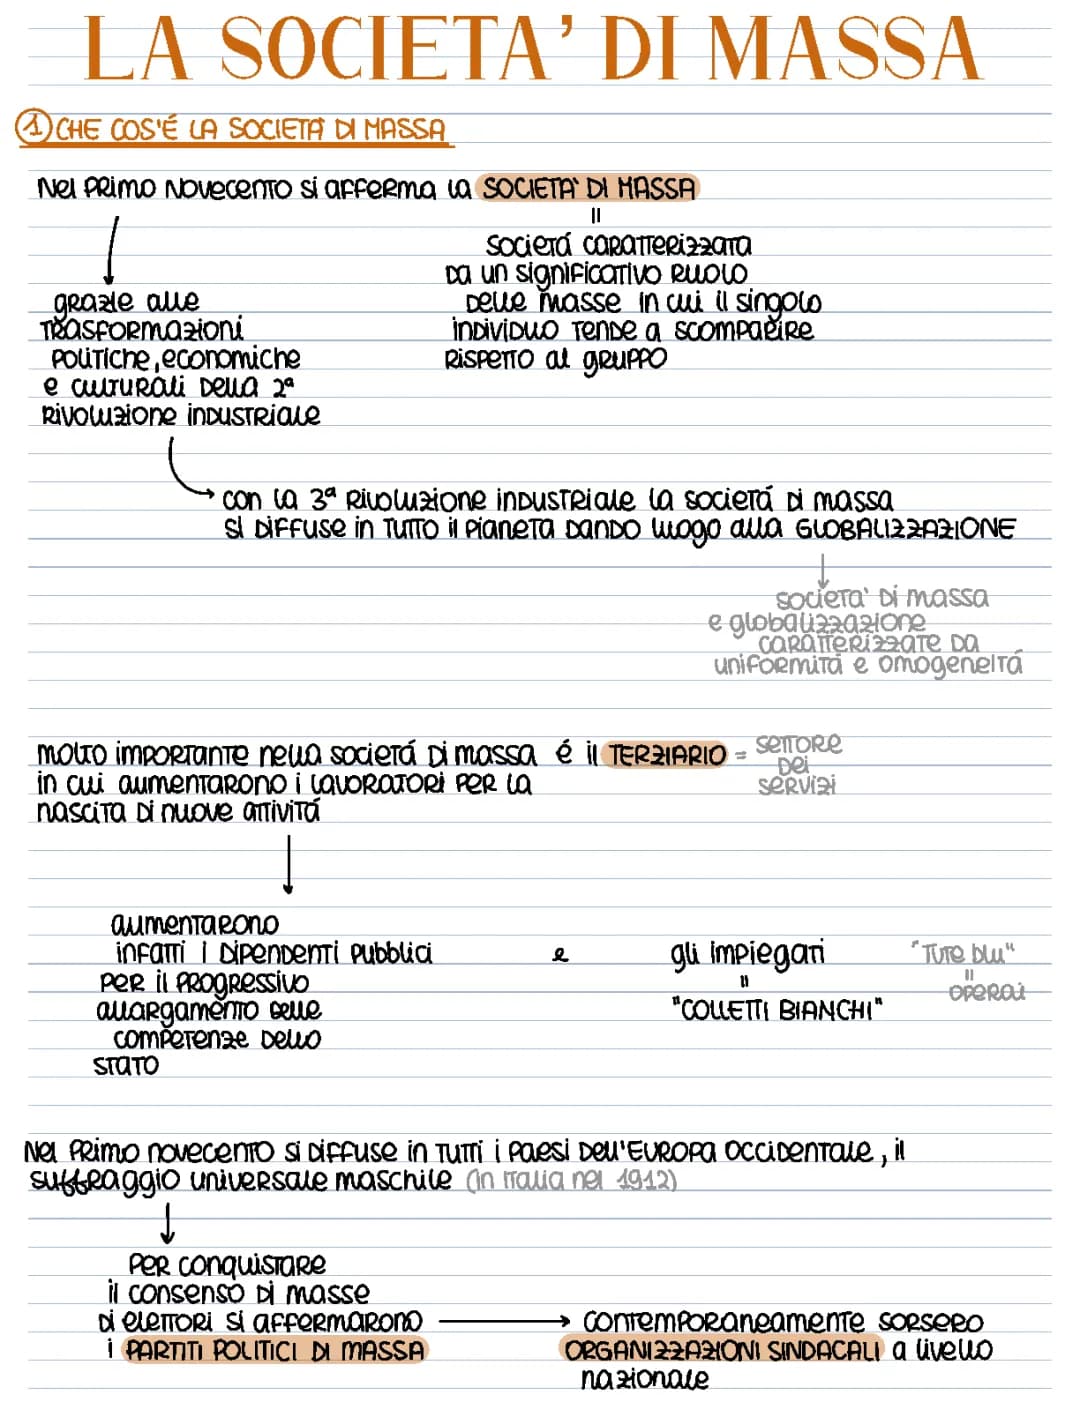 LA SOCIETA' DI MASSA
1 CHE COS'É LA SOCIETÁ DI MASSA
Nel PRIMO NOVECENTO si afferma la SOCIETA' DI MASSA
=
SOCIETÁ CARATTERIZZATA
DA UN SIGNIFICATIVO RUOLO
DELLE MASSE IN CUI IL SINGOLO
INDIVIDUO TENDE A SCOMPARIRE
RISPETTO AL GRUPPO
GRAZIE ALLE
TRASFORMAZIONI
POLITICHE, ECONOMICHE
E CULTURALI DELLA 2ª
RIVOLUZIONE INDUSTRIALE
CON LA 3ª RIVOLUZIONE INDUSTRIALE LA SOCIETÁ DI MASSA
SI DIFFUSE IN TUTTO IL PIANETA DANDO LUOGO ALLA GLOBALIZZAZIONE
SOCIETA' DI MASSA
E GLOBALIZZAZIONE
CARATTERIZZATE DA
UNIFORMITÁ E OMOGENEITÁ
MOLTO IMPORTANTE NELLA SOCIETÁ DI MASSA É IL TERZIARIO = SETTORE
DEI
SERVIZI
IN CUI AUMENTARONO I LAVORATORI PER LA
NASCITA DI NUOVE ATTIVITÁ
AUMENTARONO
INFATTI I DIPENDENTI PUBBLICI
PER IL PROGRESSIVO
ALLARGAMENTO DELLE
COMPETENZE DELLO
STATO
e
GLI IMPIEGATI
=
"COLLETTI BIANCHI"
"TUTE BLU"
=
OPERAI
NEL PRIMO NOVECENTO SI DIFFUSE IN TUTTI I PAESI DELL'EUROPA OCCIDENTALE, IL
SUFFRAGGIO UNIVERSALE MASCHILE (IN ITALIA NEL 1912)
PER CONQUISTARE
IL CONSENSO DI MASSE
DI ELETTORI SI AFFERMARONO
I PARTITI POLITICI DI MASSA
CONTEMPORANEAMENTE SORSERO
ORGANIZZAZIONI SINDACALI A LIVELLO
NAZIONALE